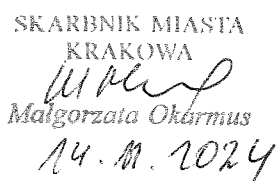 SKARBNIK MIASTA
KRAKOWA
Małgorzata Okarmus
14. 11. 2024